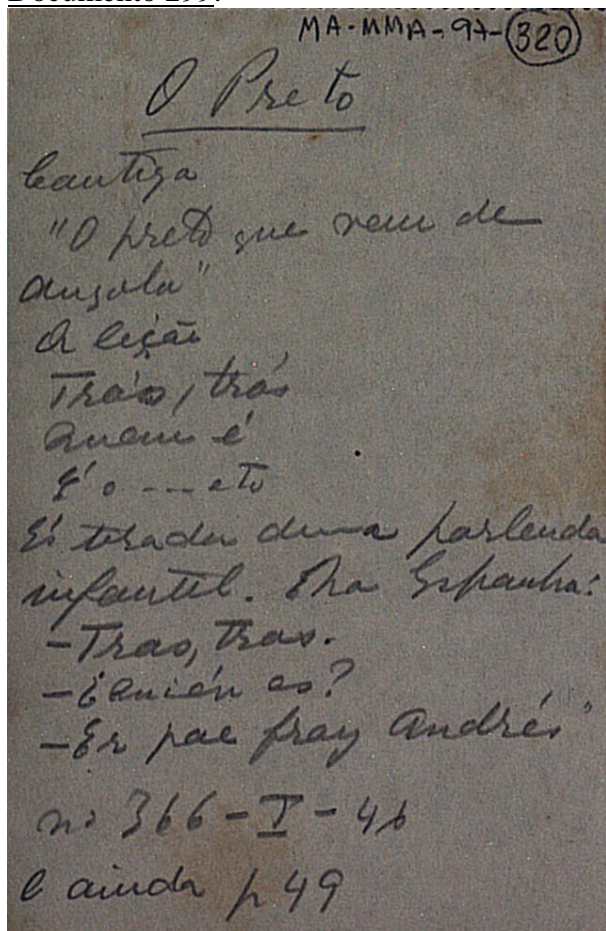 Documento 299:
MA-MMA-97-320
O Preto
Cantiga
"O preto que vem de
Angola"
A lição
Trás, trás
Quem é
É o --- eto
És tirada duma parlenda
infantil. Na Espanha:
-Tras, tras.
-¿Quién es?
-Er pae fray Andrés"
nº 366-I-46
e ainda p 49